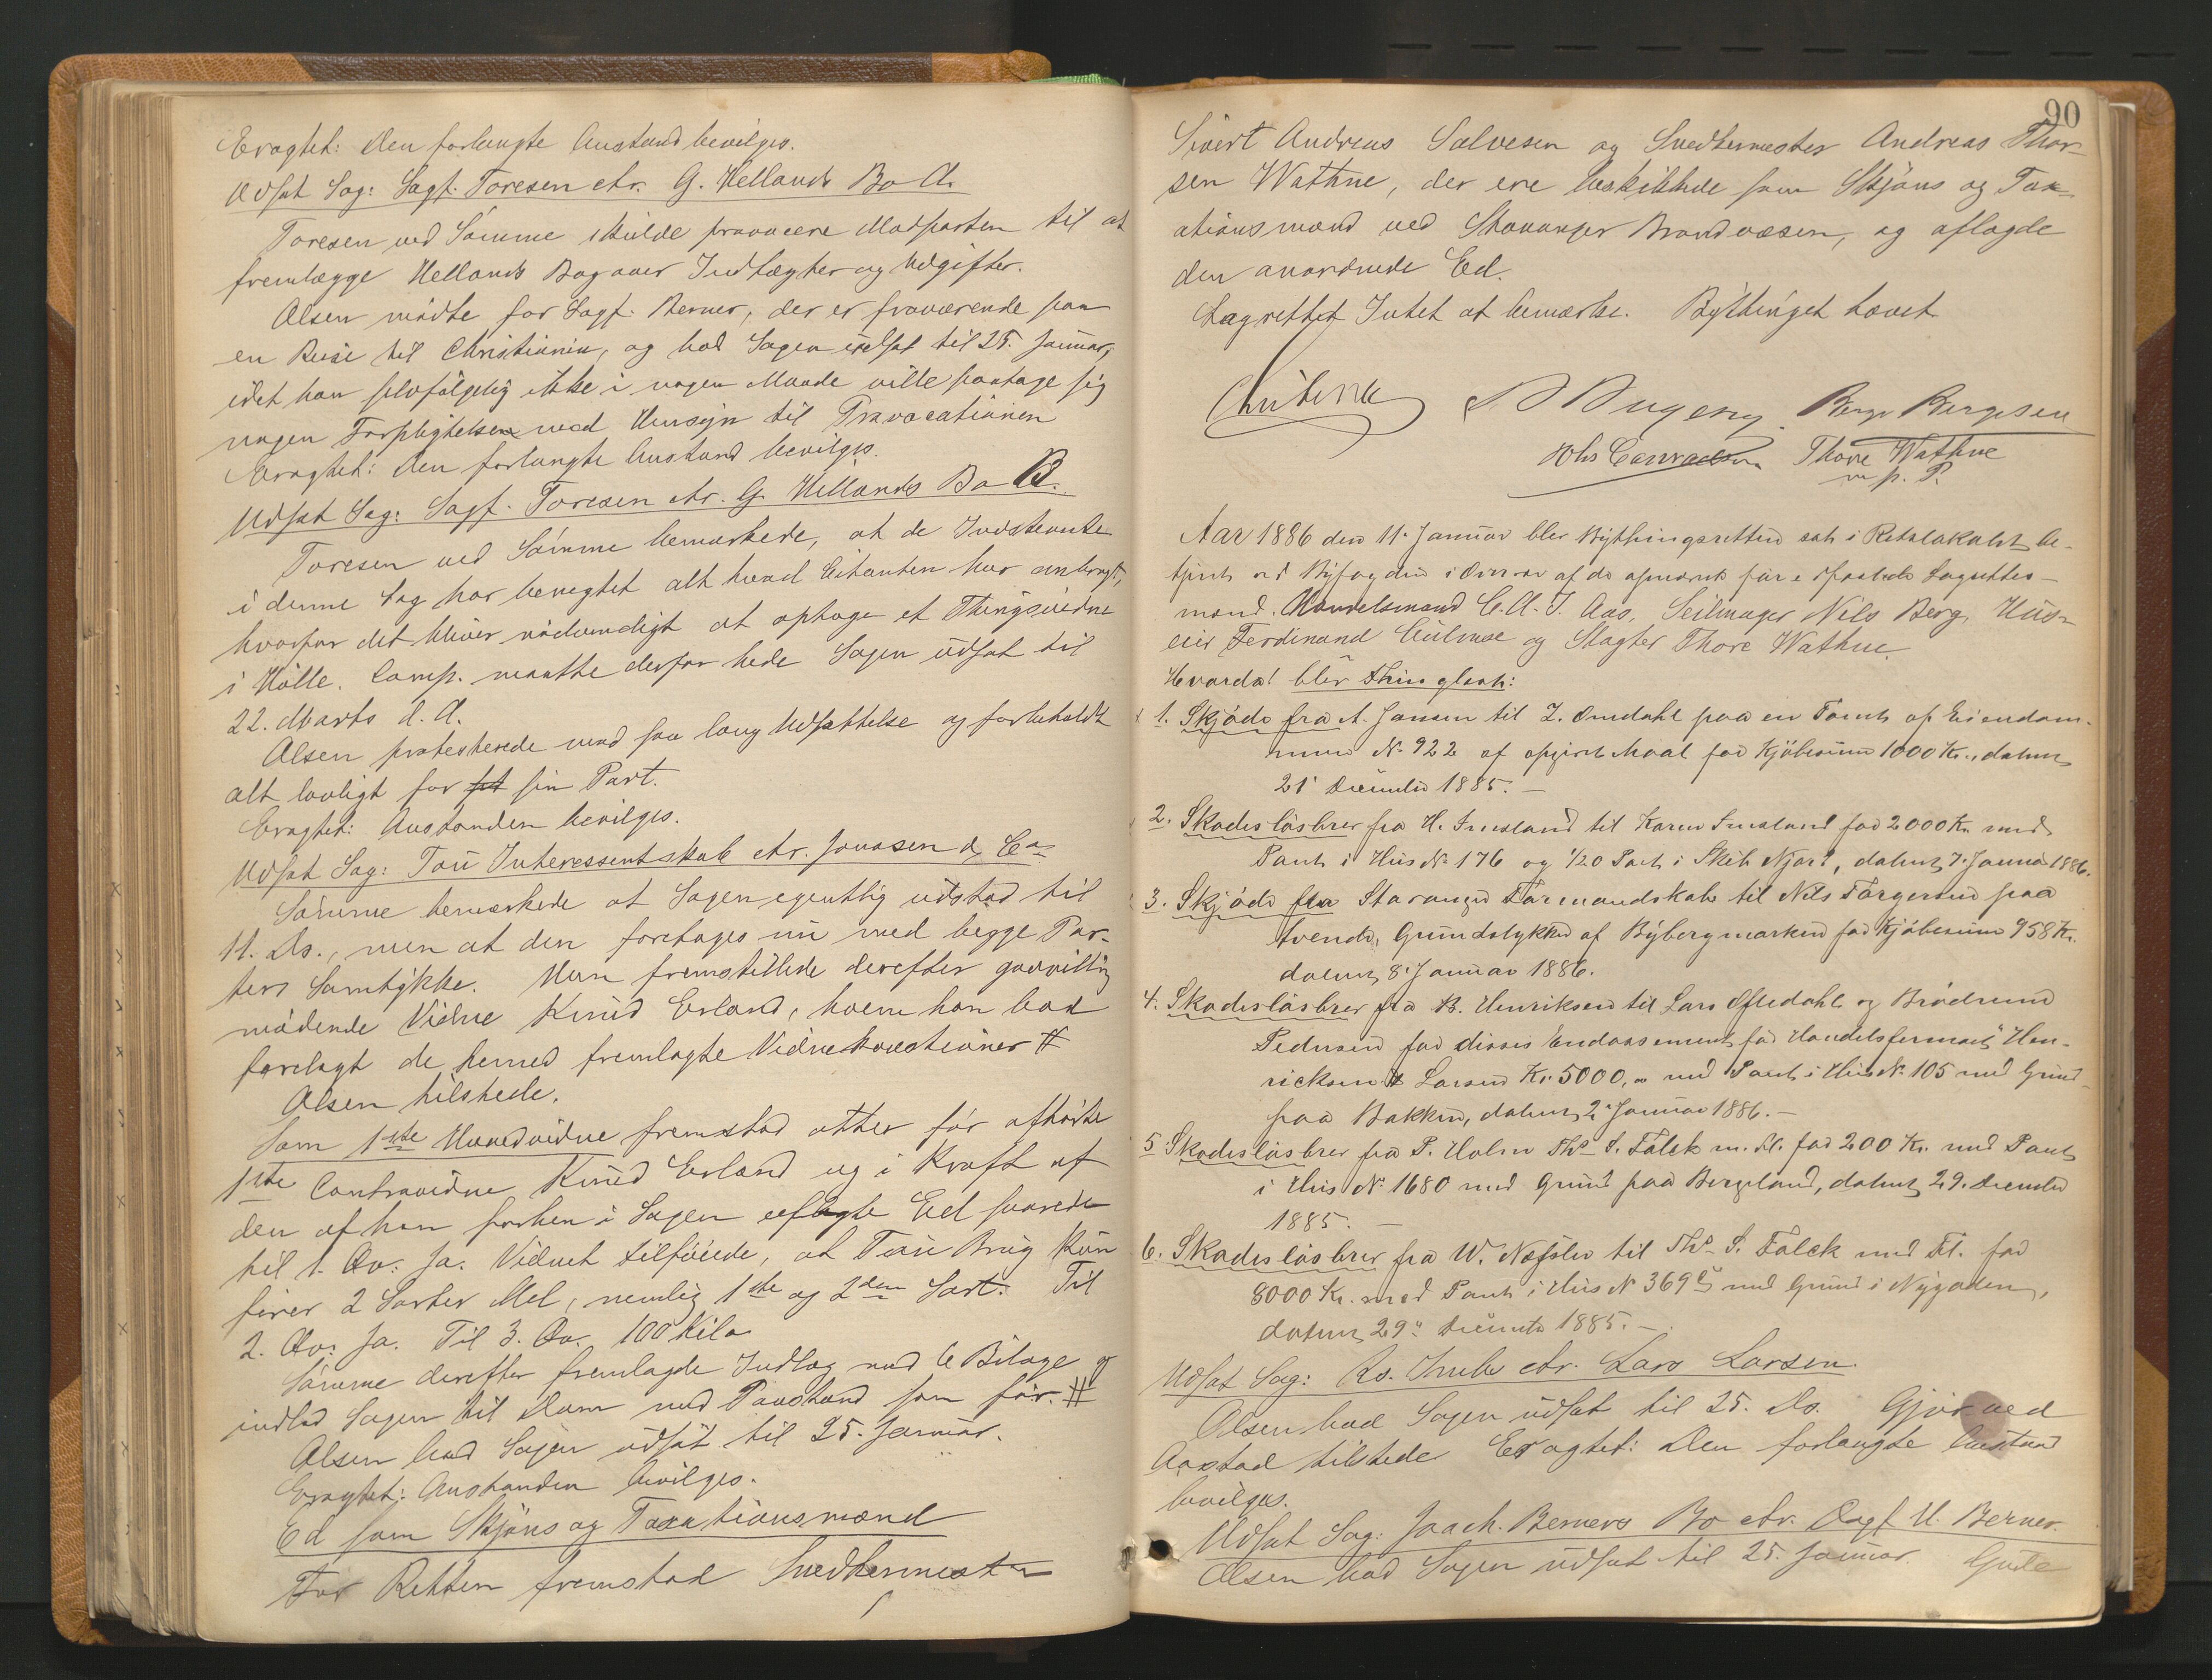 Eragtet: Den forlangte Anstand bevilges.
Udsat Sag: Sagf. Toresen ctr. G. Hellands Bo A.
Toresen ved Sømme skulde provocere Modparten til at
fremlægge Hellands Bog over Indtægter og Udgifter.
Olsen mødte for Sagf. Berner, der er fraværende paa
en Reise til Christiania, og bad Sagen udsat til 25. Januar,
idet han selvfølgelig ikke i nogen Maade ville paatage sig
nogen Forpligtelse med Hensyn til Provocationen
Eragtet: Den forlangte Anstand bevilges.
Udsat Sag: Sagf. Toresen ctr. G. Hellands Bo B.
Toresen ved Sømme bemærkede, at de Indstevnte
i denne Sag har benegtet alt hvad Citanten har anbragt,
hvorfor det bliver nødvendigt at optage et Thingsvidne
i Hölle. Comp. maatte derfor bede Sagen udsat til
22. Marts d. A.
Olsen protesterede mod saa lang Udsættelse og forbeholdt
alt lovligt for sin Part.
Eragtet: Anstanden bevilges.
Udsat Sag: Tou Interessentskab ctr. Jonasen & Co
Sømme bemærkede at Sagen egentlig udstod til
11. Ds., men at den foretages nu med begge Par-
ters Samtykke. Han fremstillede derefter godvillig
mødende Vidne Knud Erland, hvem han bad
forelagt de hermed fremlagte Vidnekvæstioner #
Olsen tilstede.
Som 1ste Hovedvidne fremstod atter før afhørte
1ste Contravidne Knud Erland og i Kraft af
den af ham forhen i Sagen aflagte Ed svarede
til 1. Qv: Ja. Vidnet tilføiede, at Tou Brug kun
fører 2 Sorter Mel, nemlig 1ste og 2den Sort. Til
2. Qv: Ja. Til 3. Qv. 100 Kilo
Sømme derefter fremlagde Indlæg med 6 Bilage og
indlod Sagen til Dom med Paastand som før. #
Olsen bad Sagen udsat til 25. Januar.
Eragtet: Anstanden bevilges.
Ed som Skjøns og Taxationsmænd
For Retten fremstod Snedkermester
90
Sivert Andreas Salvesen og Snedkermester Andreas Thor-
sen Wathne, der ere beskikkede som Skjøns og Tax-
ationsmænd ved Stavanger Brandvæsen, og aflagde
den anordnede Ed.
Lagrettet Intet at bemærke. Bythinget hævet
Børge Børgesen
Johs Conradsen Thore Wathne
m. p. P.
Aar 1886 den 11. Januar blev Bythingsretten sat i Retslokalet be-
tjent ved Byfogden i Overvær af de opnævnte før edfæstede Lagrettes-
mænd. Handelsmand C. A. J. Aas, Seilmager Nils Berg, Hus-
eier Ferdinand Culmse og Slagter Thore Wathne.
Hvorda! blev thinglæst:
1. Skjøde fra A. Jansen til Z. Omdahl paa en Tomt af Eiendom-
men No 922 af opgivet Maal for Kjøbesum 1000 Kr., datert
21 December 1885. —
2. Skadesløsbrev fra H. Imsland til Karen Imsland for 2000 Kr. med
Pant i Hus No 176 og 1/20 Part i Skib Njord, datert 7. Januar 1886.
3. Skjøde fra Stavanger Formandskab til Nils Torgersen paa
tvende Grundstykker af Bybergmarken for Kjøbesum 958 Kr.
datert 8. Januar 1886.
4. Skadesløsbrev fra B. Henriksen til Lars Oftedahl og Brødrene
Pedersen for disses Endossement for Handelsfirmaet Hen-
ricksen & Larsen Kr. 5000, " med Pant i Hus No 105 med Grund
paa Bakken, datert 2. Januar 1886. —
5 Skadesløsbrev fra P. Holm Ths S. Falck m. Fl. for 200 Kr. med Pant
i Hus No 1680 med Grund paa Bergeland, datert 29. December
1885. —
6. Skadesløsbrev fra W. Næsler til Ths S. Falck med Fl. for
8000 Kr. med Pant i Hus No 369 c med Grund i Nygaden,
datert 29. December 1885. —
Udsat Sag: Rs. Lars Larsen.
Olsen bad Sagen udsat til 25. Ds. Gjør ved
Aastad tilstede Eragtet: Den forlangte Anstand
bevilges.
Udsat Sag: Joach. Berners Bo ctr. Sagf. H. Berner.
Olsen bad Sagen udsat til 25. Januar. Gude